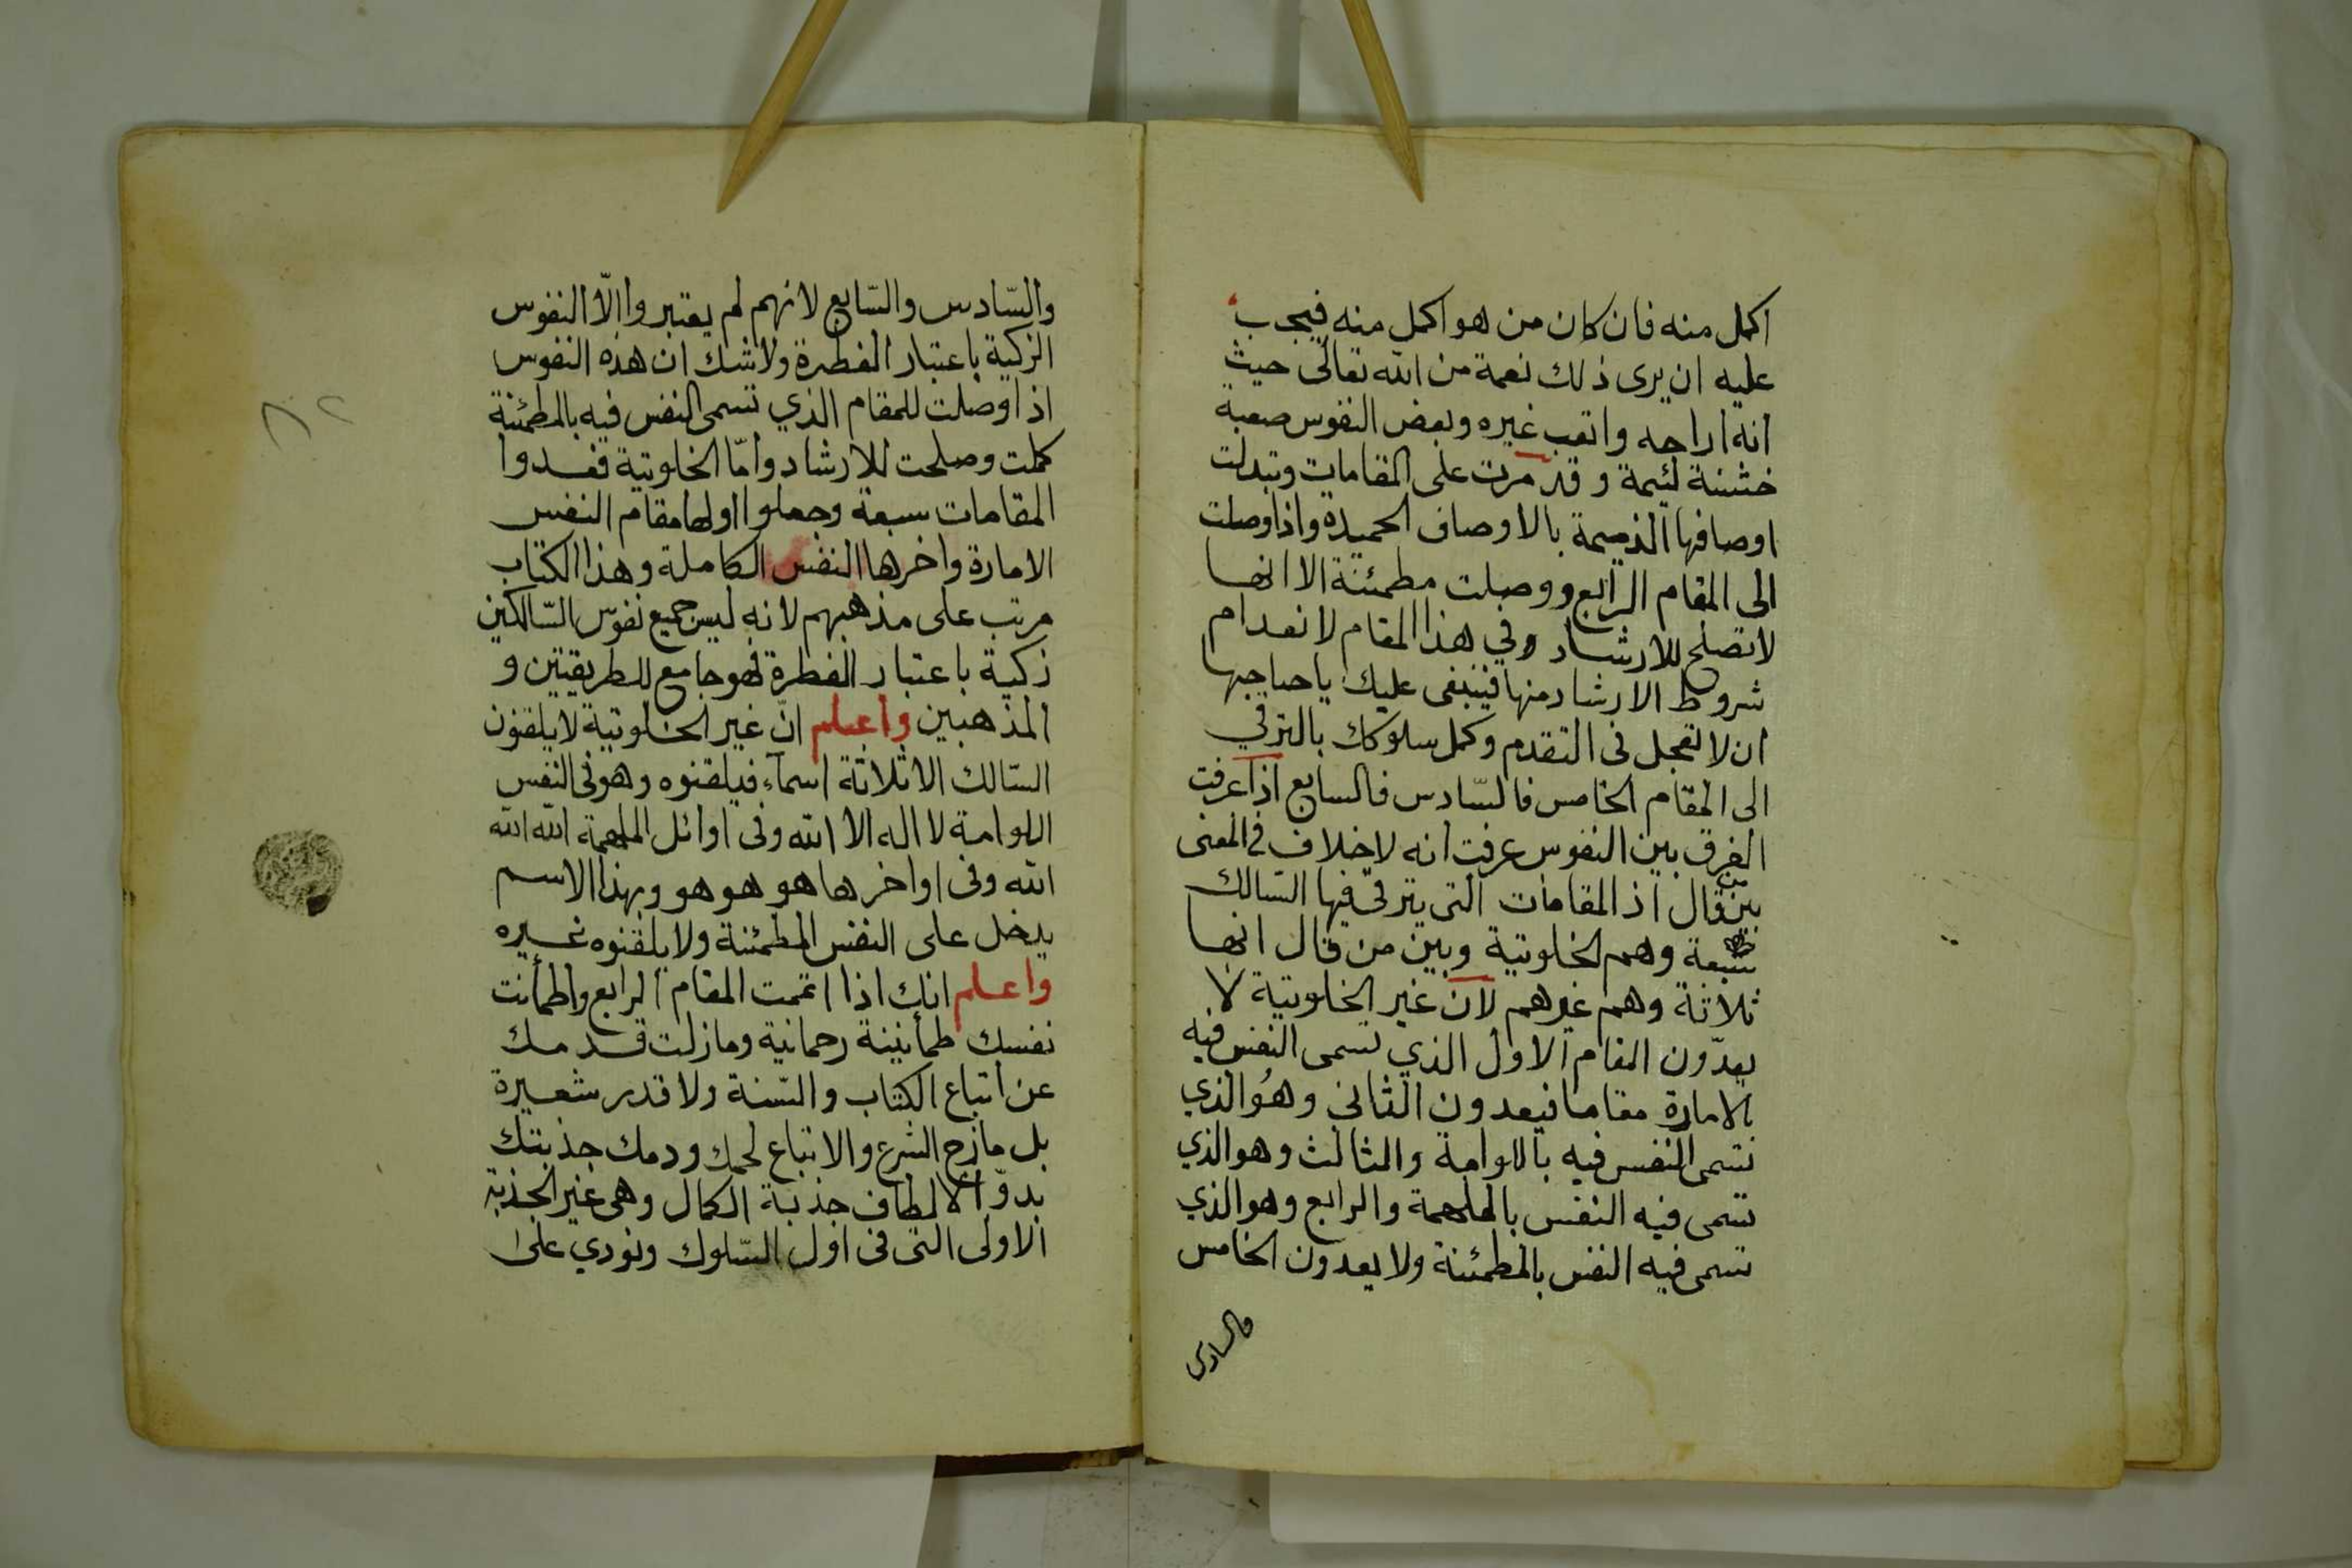 اكمل منه فان كان من هو اكمل منه فيجب
عليه ان يرى ذلك نعمة من الله تعالى حيث
انه اراحه واتعب غيره وبعض النفوس صعبة
خشنة لئيمة وقد مرت على المقامات وتبدلت
اوصافها الذميمة بالاوصاف الحميدة واذا وصلت
الى المقام الرابع ووصلت مطمئنة الا انها
لا تصلح للارشاد وفي هذا المقام لانعدام
شروط الارشاد منها فينبغى عليك يا صاحبها
ان لا تعجل فى التقدم وكمل سلوكك بالترقي
الى المقام الخامس فالسّادس فالسابع اذا عرفت
الفرق بين النفوس عرفت انه لا خلاف في المعنى
بين من قال اذ المقامات التى يترقى فيها السّالك
سبعة وهم الخلوتية وبين من قال انها
ثلاثة وهم غيرهم لان غير الخلوتية لا
يعدّون المقام الاول الذي تسمى النفس فيه
بالامارة مقاما فيعدون الثانى وهُو الذي
تسمى النفس فيه باللوامة والثالث وهو الذي
تسمى فيه النفس بالملهمة والرابع وهو الذي
تسمى فيه النفس بالمطمئنة ولا يعدون الخامس
والسادس
والسّادس والسّابع لانهم لم يعتبروا الّا النفوس
الزكية باعتبار الفطرة ولا شك ان هذه النفوس
اذا وصلت للمقام الذي تسمى النفس فيه بالمطمئنة
كملت وصلحت للارشاد وامّا الخلوتية فعدوا
المقامات سبعة وجعلوا اولها مقام النفس
الامارة واخرها النفس الكاملة وهذا الكتاب
مرتب على مذهبهم لانه ليس جميع نفوس السّالكين
زكية باعتبار الفطرة فهو جامع للطريقتين و
المذهبين واعلم انّ غير الخلوتية لا يلقنون
السّالك الا ثلاثة اسمآء فيلقنوه وهو فى النفس
اللوامة لا اله الا الله وفى اوائل الملهمة الله الله
الله وفى اواخرها هو هو هو وبهذا الاسم
يدخل على النفس المطمئنة ولا يلقنوه غيره
واعلم انك اذا اتممت المقام الرابع واطمأنت
نفسك طمأنينة رحمانية وما زلت قدمك
عن اتباع الكتاب والسّنة ولا قدر شعيرة
بل مازج الشرع والاتباع لحمك ودمك جذبتك
يد والا لطاف جذبة الكمال وهى غير الجذبة
الاولى التى فى اول السّلوك ونودي على
٨٢